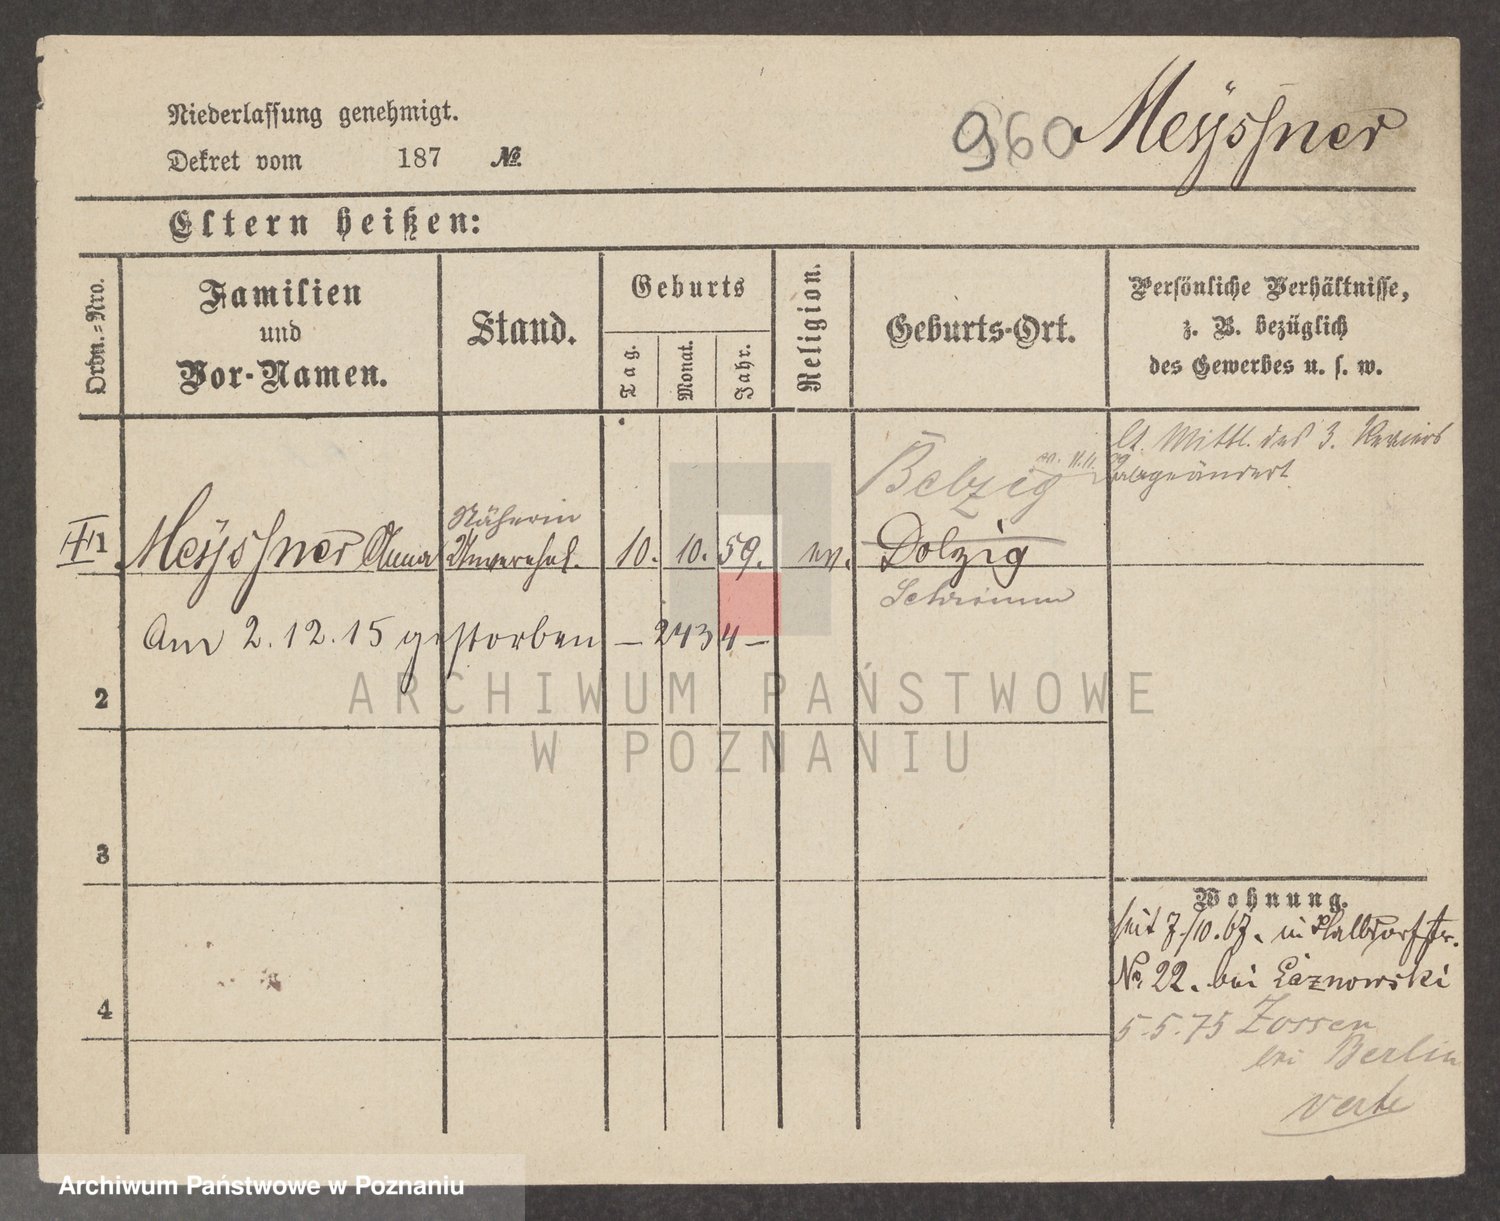 Niederlassung genehmigt.
Dekret vom 187 №
960 Meyssner
Eltern heißen:
Ordn.=Nro.
Familien
und
Vor-Namen.
Stand.
Geburts
Tag.
Monat.
Jahr.
Religion.
Geburts-Ort.
Persönliche Verhältnisse,
z. B. bezüglich
des Gewerbes u. s. w.
lt. Mittl. des 3. Reviers
abgeändert
Belzig
Näherin
1 Meyssner Anna Unverehel. 10. 10. 59. ev. Dolzig
Schrimm
Am 2.12.15 gestorben – 2434 –
2
3
4
Wohnung.
seit 7./10.67. in Halbdorfstr.
No 22. bei Liznowski
5.5.75 Zossen
bei Berlin
verte
ARCHIWUM PAŃSTWOWE
W POZNANIU
Archiwum Państwowe w Poznaniu